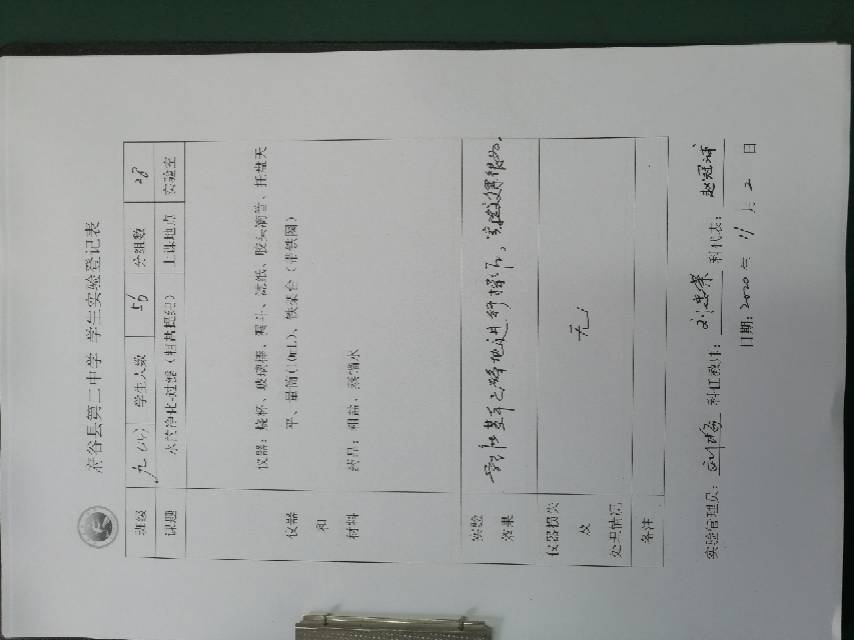 府谷县第二中学 学生实验登记表
班级 九 学生人数 56 分组数 28
课题 水的净化-过滤（粗盐提纯） 上课地点 实验室
仪器和材料
仪器：烧杯、玻璃棒、漏斗、滤纸、胶头滴管、托盘天
平、量筒(10mL)、铁架台（带铁圈）
药品：粗盐、蒸馏水
实验效果 学生基本正确地进行操作，实验效果很好。
仪器损失及处理情况 无
备注
实验管理员： 科任教师： 科代表：赵冠
日期：2020 年 11 月 2 日